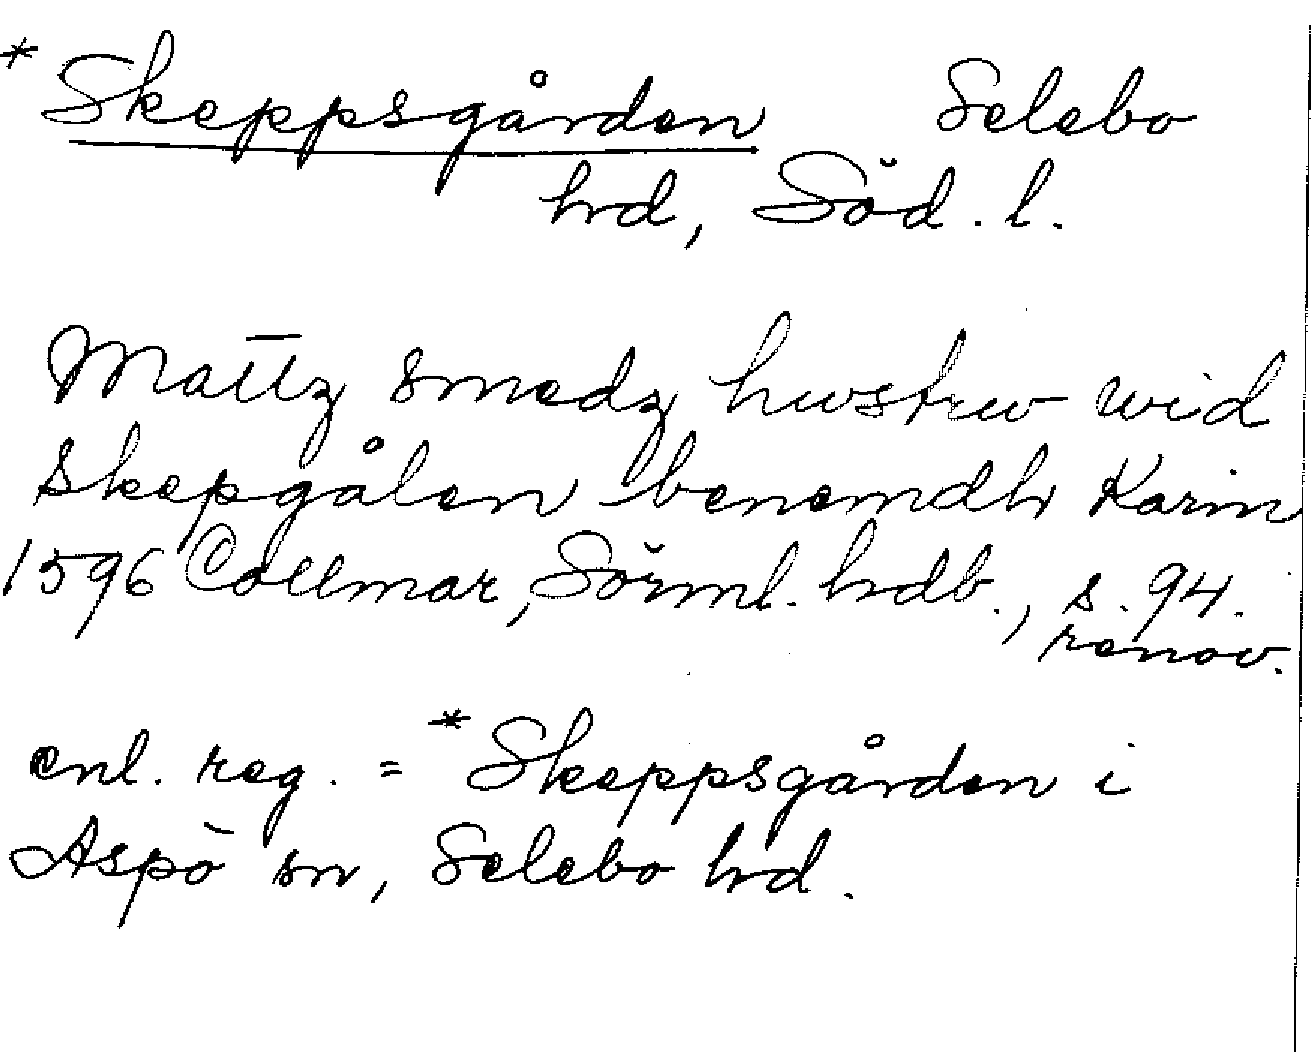 * Skeppsgården Selebo
hrd, Söd. l.
Mattz smedz hwstrw wid
Skepgålen benemdh Karin
1596 Collmar, Sörml. hrdb., s. 94.
renov.
enl. reg. = * Skeppsgården i
Aspö sn, Selebo hrd.